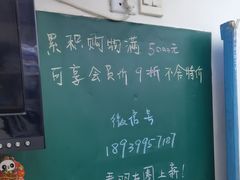 累积购物满 5000元
可享会员价9折 不含特价
微信号
18939957187
朋友圈上新!